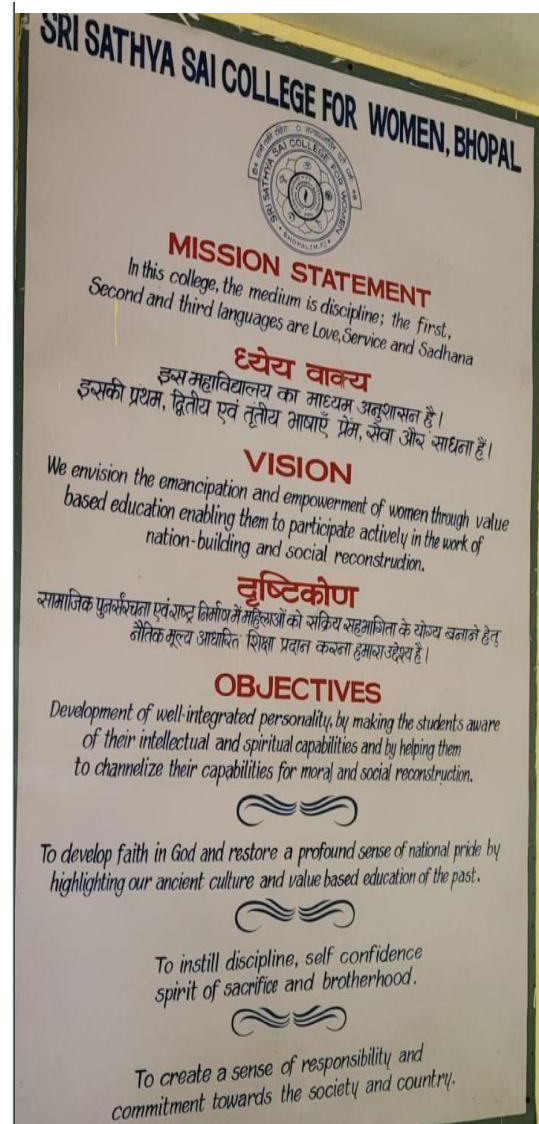 SRI SATHYA SAI COLLEGE FOR WOMEN, BHOPAL
SRI SATHYA SAI COLLEGE FOR WOMEN
BHOPAL (M.P.)
MISSION STATEMENT
In this college, the medium is discipline; the first,
Second and third languages are Love, Service and Sadhana
ध्येय वाक्य
इस महाविद्यालय का माध्यम अनुशासन है।
इसकी प्रथम, द्वितीय एवं तृतीय भाषाएँ प्रेम, सेवा और साधना हैं।
VISION
We envision the emancipation and empowerment of women through value
based education enabling them to participate actively in the work of
nation-building and social reconstruction.
दृष्टिकोण
सामाजिक पुनर्संरचना एवं राष्ट्र निर्माण में महिलाओं को सक्रिय सहभागिता के योग्य बनाने हेतु
नैतिक मूल्य आधारित शिक्षा प्रदान करना हमारा उद्देश्य है।
OBJECTIVES
Development of well-integrated personality, by making the students aware
of their intellectual and spiritual capabilities and by helping them
to channelize their capabilities for moral and social reconstruction.
To develop faith in God and restore a profound sense of national pride by
highlighting our ancient culture and value based education of the past.
To instill discipline, self confidence
spirit of sacrifice and brotherhood.
To create a sense of responsibility and
commitment towards the society and country.